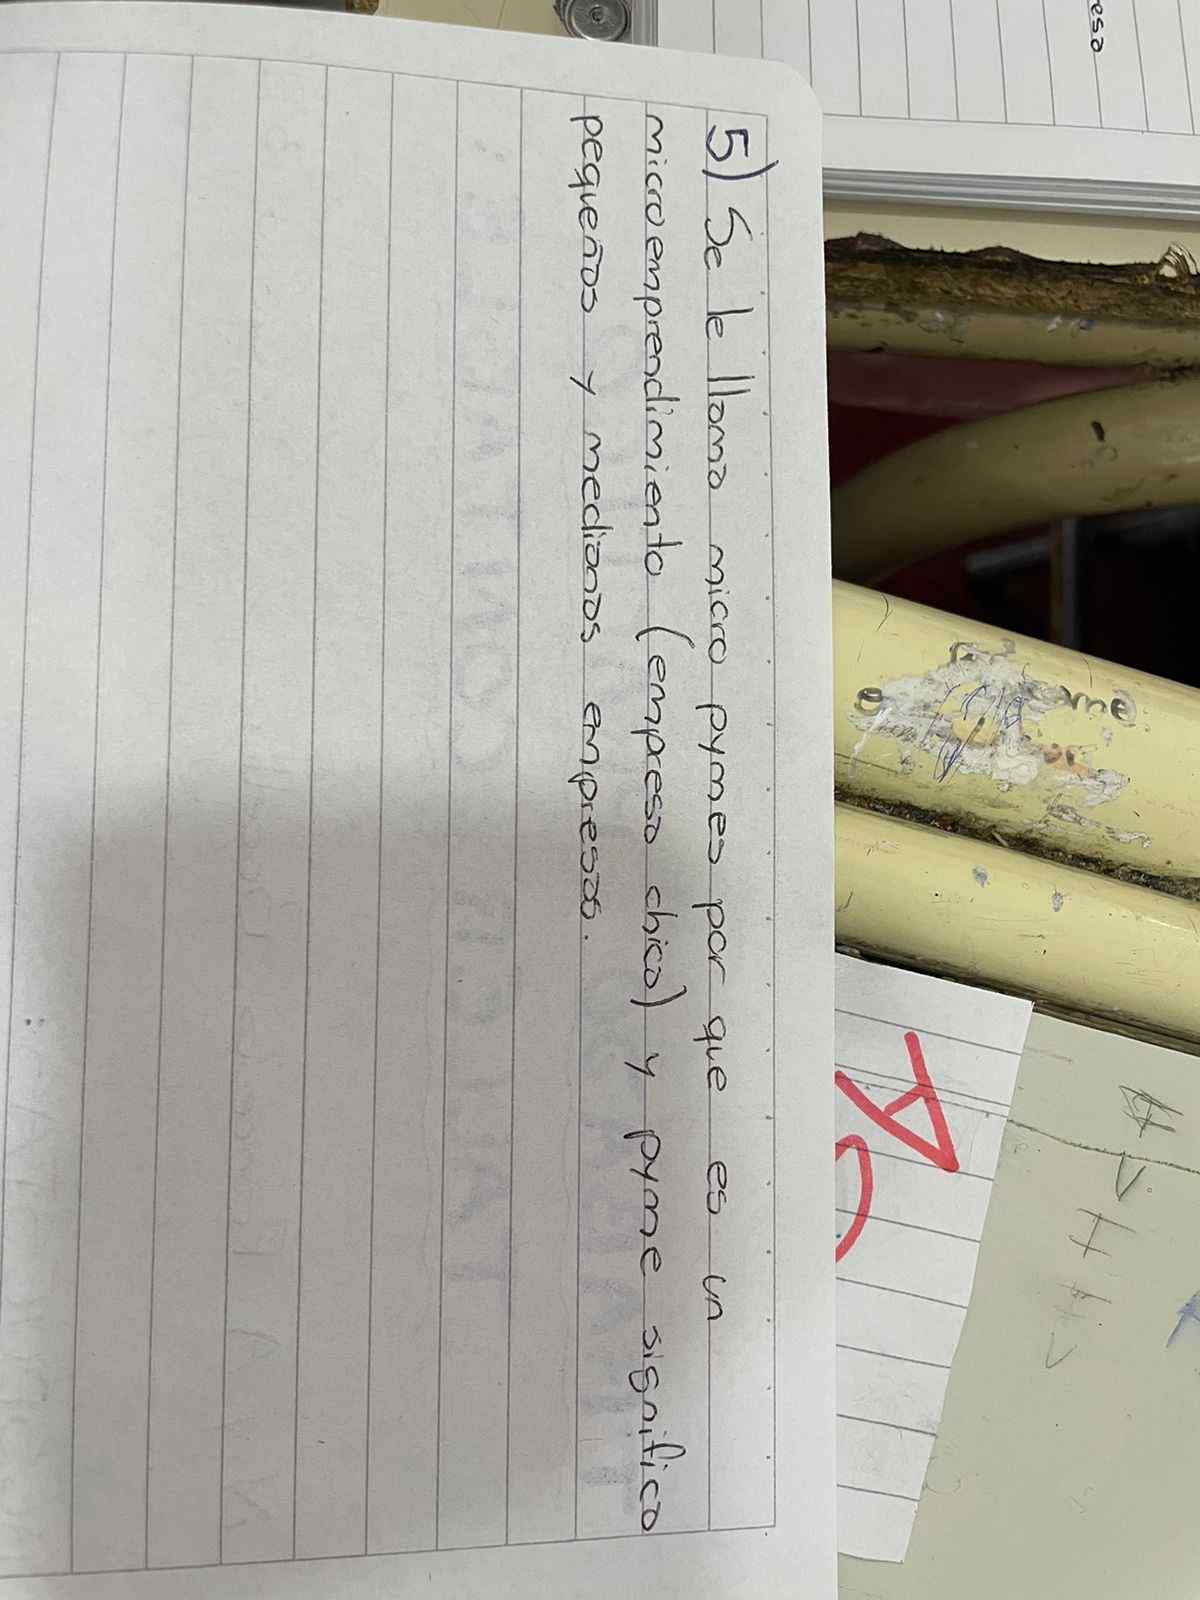 5) Se le llama micro pymes por que es un
microemprendimiento (empresa chica) y pyme significa
pequeñas y medianas empresas.
resa